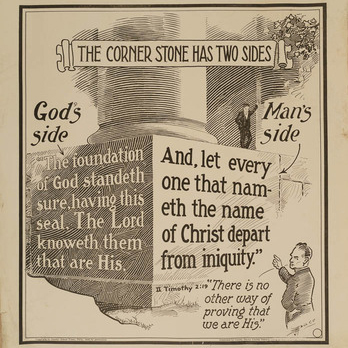 THE CORNER STONE HAS TWO SIDES
God's
side
Man's
side
"The foundation
of God standeth
sure, having this
seal, The Lord
knoweth them
that are His.
And, let every
one that nam-
eth the name
of Christ depart
from iniquity."
II Timothy 2:19
"There is no
other way of
proving that
we are His."